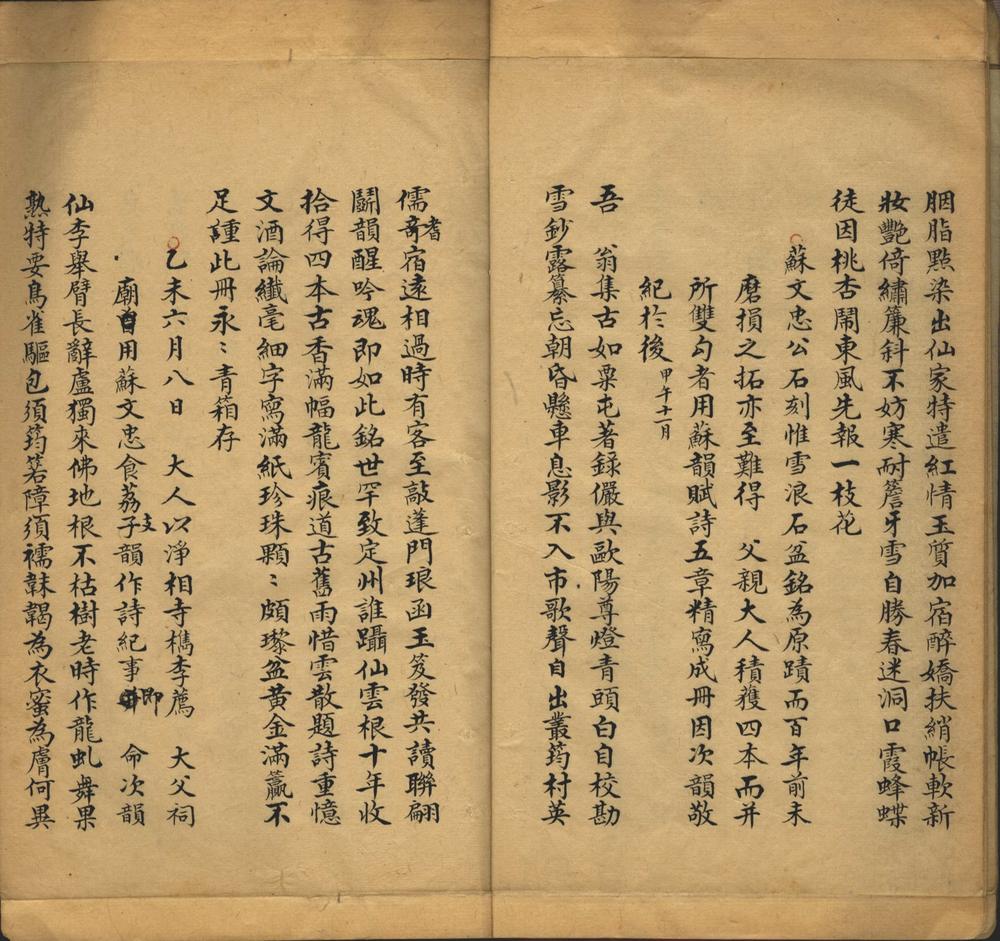 胭脂點染出仙家特遣紅情玉質加宿醉嬌扶綃帳軟新
妝艷倚繡簾斜不妨寒耐簷牙雪自勝春迷洞口霞蜂蝶
徒因桃杏鬧東風先報一枝花
蘇文忠公石刻惟雪浪石盆銘為原蹟而百年前未
磨損之拓亦至難得　父親大人積獲四本而并
所雙勾者用蘇韻賦詩五章精寫成冊因次韻敬
紀於後 甲午十一月
吾　翁集古如粟屯著錄儼與歐陽尊燈青頭白自校勘
雪鈔露纂忘朝昏懸車息影不入市歌聲自出叢筠村英
儒耆宿遠相過時有客至敲蓬門琅函玉笈發共讀聯翩
鬭韻醒吟魂即如此銘世罕致定州誰躡仙雲根十年收
拾得四本古香滿幅龍賓痕道古舊雨惜雲散題詩重憶
文酒論纖毫細字寫滿紙珍珠顆〻頗瓈盆黃金滿籯不
足諈此冊永〻青箱存
乙未六月八日　大人以淨相寺檇李薦　大父祠
廟用蘇文忠食荔支韻作詩紀事即　命次韻
仙李舉臂長辭盧獨來佛地根不枯樹老時作龍虬舞果
熟特要鳥雀驅包須筠箬障須襦韎韐為衣蜜為膚何異